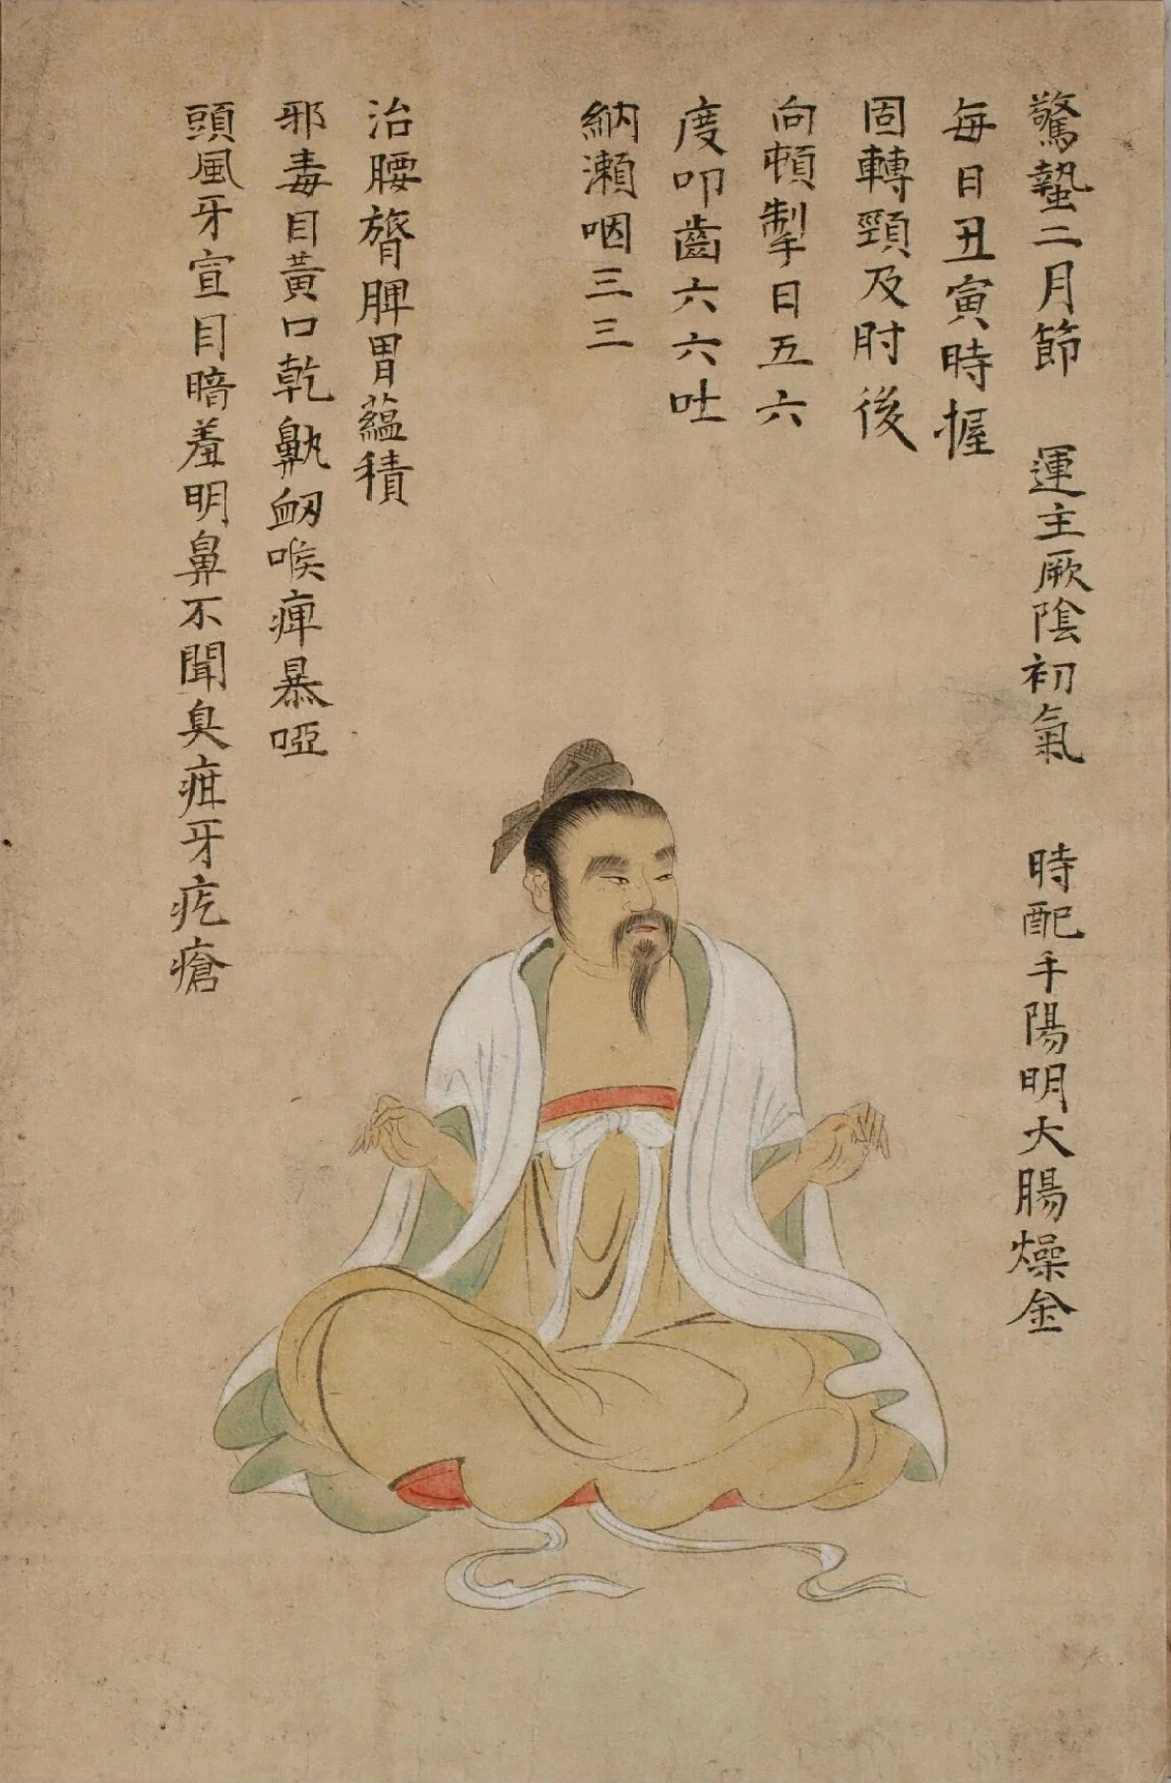 驚蟄二月節 運主厥陰初氣 時配手陽明大腸燥金
每日丑寅時握
固轉頸及肘後
向頓掣日五六
度叩齒六六吐
納漱咽三三
治腰膂脾胃蘊積
邪毒目黃口乾鼽衂喉痺暴啞
頭風牙宣目暗羞明鼻不聞臭疽牙疙瘡